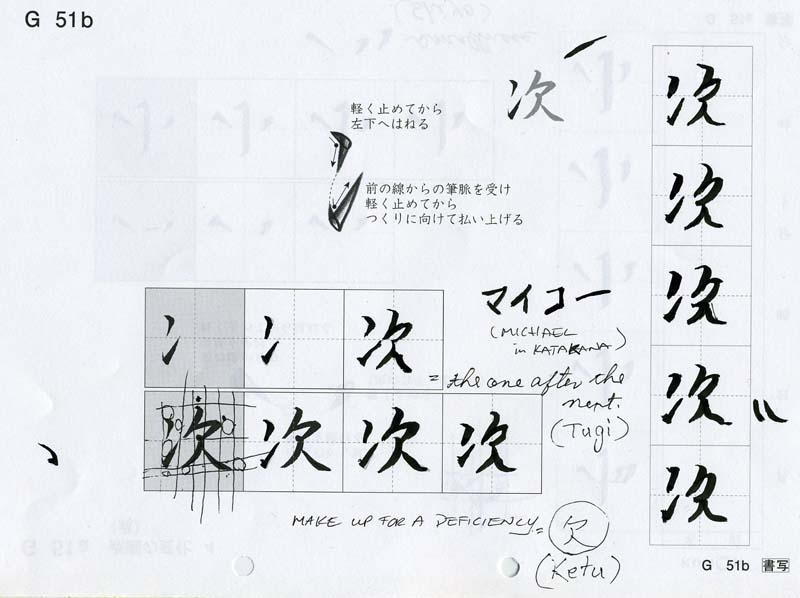 G 51b
次
次
軽く止めてから
左下へはねる
前の線からの筆脈を受け
軽く止めてから
つくりに向けて払い上げる
次
次
次
次
マイコー
(MICHAEL
in KATAKANA)
冫 冫 次
= the one after the
next.
(Tugi)
次 次 次 次
MAKE UP FOR A DEFICIENCY = 欠
(Ketu)
G 51b 書写